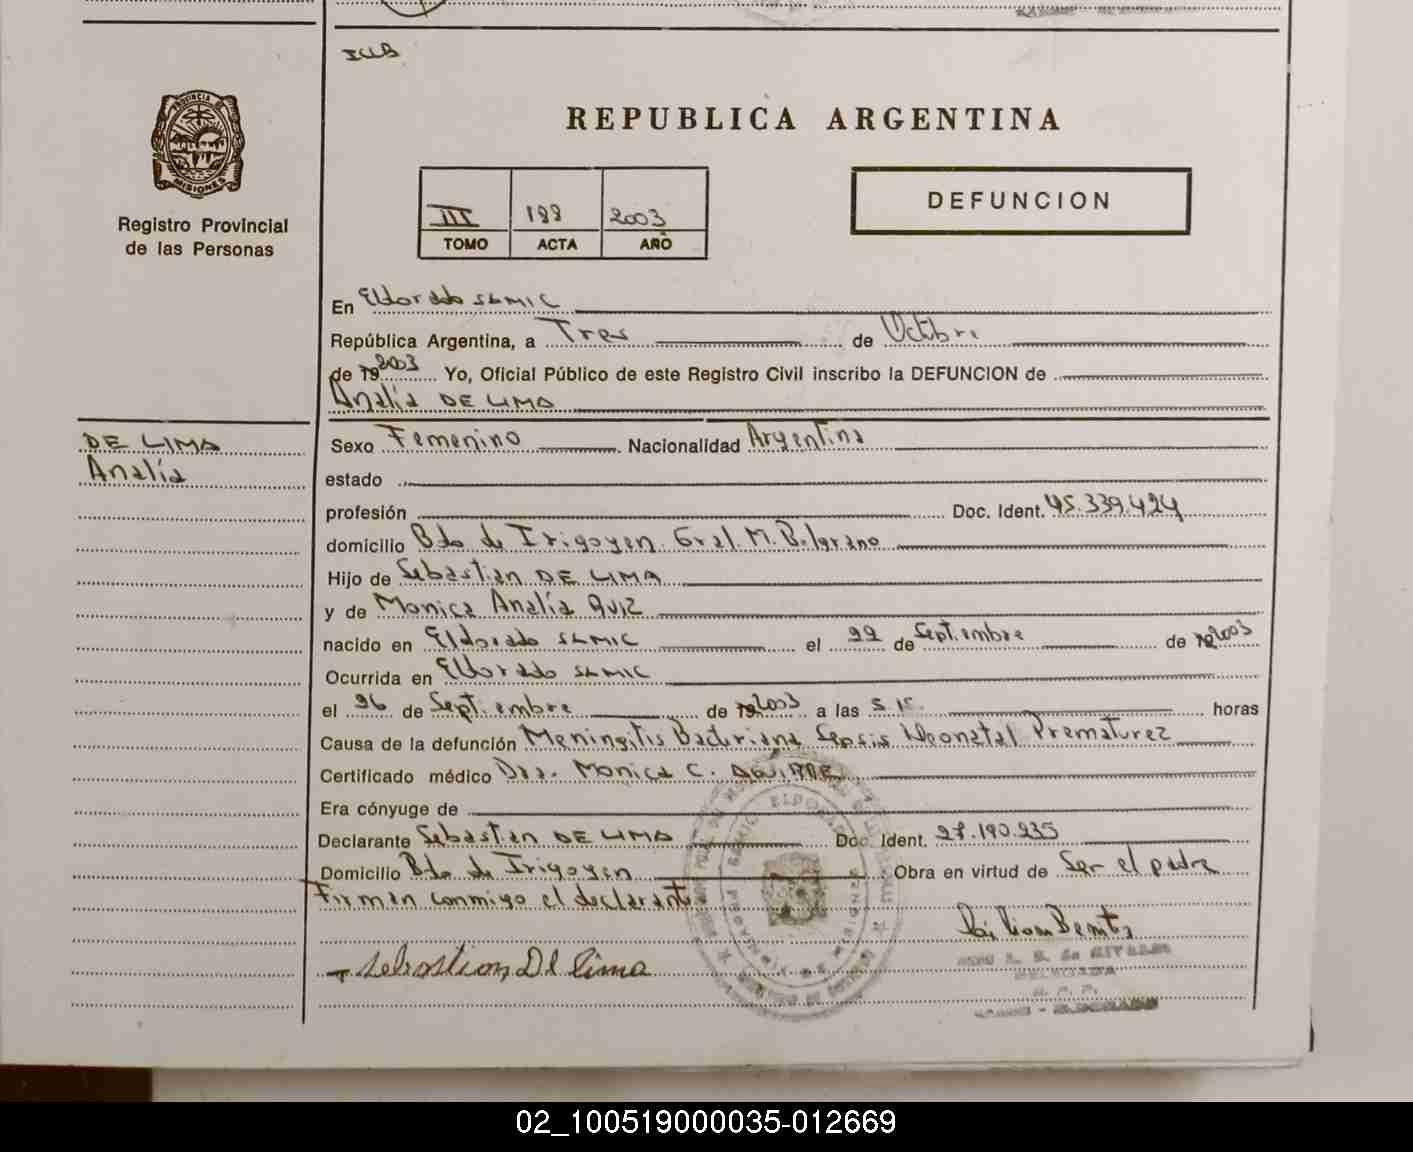 REPUBLICA ARGENTINA
PROVINCIA DE
MISIONES
Registro Provincial
de las Personas
III 199 2003
TOMO ACTA AÑO
DEFUNCION
En Eldorado SAMIC
República Argentina, a Tres de Octubre
de 19 2003 Yo, Oficial Público de este Registro Civil inscribo la DEFUNCION de
Analía DE LIMA
DE LIMA
Analía
Sexo Femenino Nacionalidad Argentina
estado
profesión Doc. Ident. 45.339.424
domicilio Bdo de Irigoyen. Gral M. Belgrano
Hijo de Sebastian DE LIMA
y de Monica Analía
nacido en Eldorado SAMIC el 22 de Septiembre de 19 2003
Ocurrida en Eldorado SAMIC
el 26 de Septiembre de 19 2003 a las 5.15. horas
Causa de la defunción Meningitis Bacteriana Sepsis Neonatal Prematurez
Certificado médico Dra. Monica C. AGUIRRE
Era cónyuge de
Declarante Sebastian DE LIMA Doc. Ident. 27.190.235
Domicilio Bdo de Irigoyen Obra en virtud de Ser el padre
Firman conmigo el declarante
Sebastian De lima
02_100519000035-012669